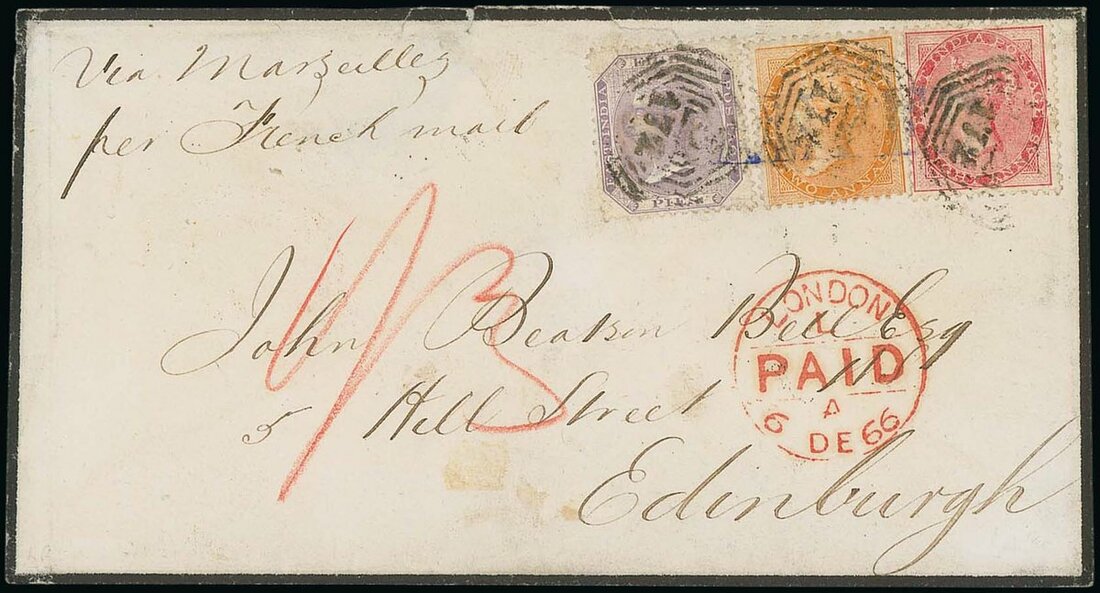 Via Marseilles
per French mail
EAST INDIA POSTAGE
PIES
TWO ANNAS
INDIA POSTAGE
172
172
1/3
LONDON
L
PAID
A
6 DE 66
John Beatson Bell Esq
5 Hill Street
Edinburgh